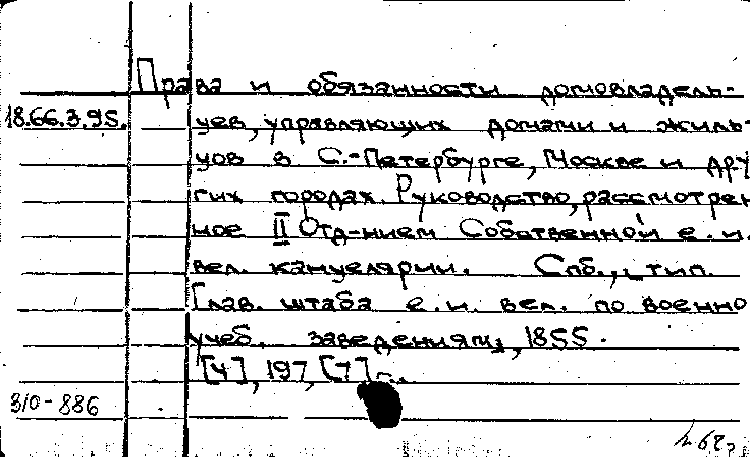 Права и обязанности домовладель-
18.66.3.95. цев, управляющих домами и жиль-
цов в С.-Петербурге, Москве и дру
гих городах. Руководство, рассмотрен
ное II Отд-нием Собственной е. и.
вел. канцелярии. Спб., тип.
Глав. штаба е. и. вел. по военно
учеб. заведениям, 1855.
[4], 197, [7] с.
310-886